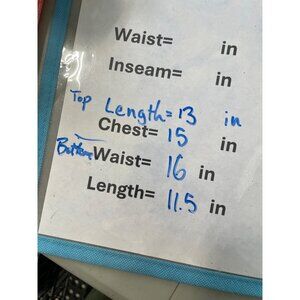 Waist= in
Inseam= in
Top Length= 13 in
Chest= 15 in
Bottom Waist= 16 in
Length= 11.5 in